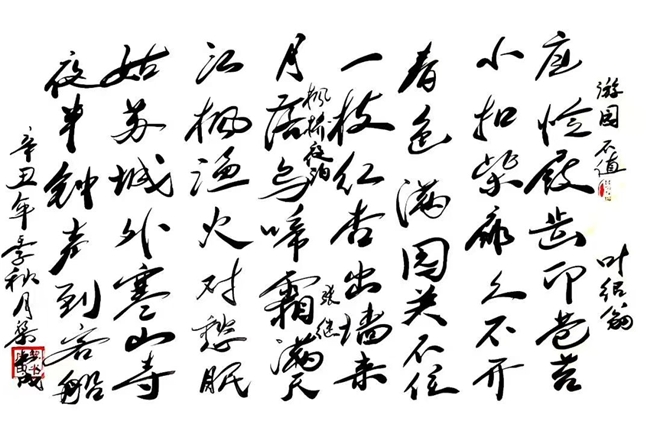 游园不值 叶绍翁
应怜屐齿印苍苔
小扣柴扉久不开
春色满园关不住
一枝红杏出墙来
枫桥夜泊 张继
月落乌啼霜满天
江枫渔火对愁眠
姑苏城外寒山寺
夜半钟声到客船
辛丑年季秋月